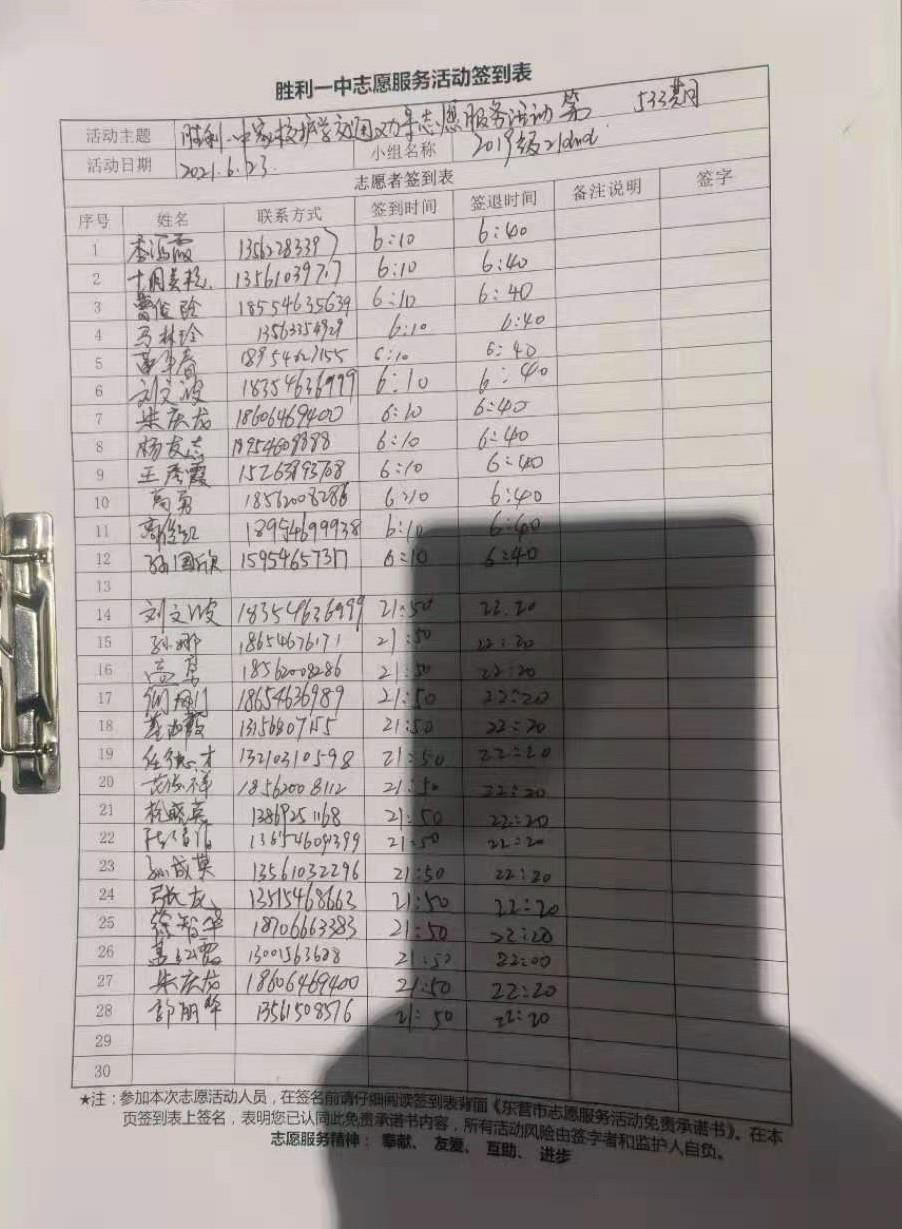 胜利一中志愿服务活动签到表
活动主题 胜利一中家校护学交通义务志愿服务活动第 533期
活动日期 2021.6.23. 小组名称 2019级
志愿者签到表
序号 姓名 联系方式 签到时间 签退时间 备注说明 签字
1 6:10 6:40
2 6:10 6:40
3 18554635639 6:10 6:40
4 马林玲 13563354929 6:10 6:40
5 6:10 6:40
6 刘文波 18354636999 6:10 6:40
7 柴庆龙 18606469400 6:10 6:40
8 杨友志 18954609888 6:10 6:40
9 王秀霞 15263893768 6:10 6:40
10 高勇 18562008286 6:10 6:40
11 18954699938 6:10 6:40
12 孙国欣 15954657317 6:10 6:40
13
14 刘文波 18354636999 21:50 22:20
15 孙娜 18654676171 21:50 22:20
16 高勇 18562008286 21:50 22:20
17 18654636989 21:50 22:20
18 21:50 22:20
19 13210310598 21:50 22:20
20 18562008112 21:50 22:20
21 21:50 22:20
22 21:50 22:20
23 孙成英 13561032296 21:50 22:20
24 张友 13515468663 21:50 22:20
25 徐智华 18706663383 21:50 22:20
26 21:50 22:00
27 柴庆龙 18606469400 21:50 22:20
28 郭丽华 13561508576 21:50 22:20
29
30
★注:参加本次志愿活动人员,在签名前请仔细阅读签到表背面《东营市志愿服务活动免责承诺书》。在本
页签到表上签名,表明您已认同此免责承诺书内容,所有活动风险由签字者和监护人自负。
志愿服务精神:奉献、友爱、互助、进步